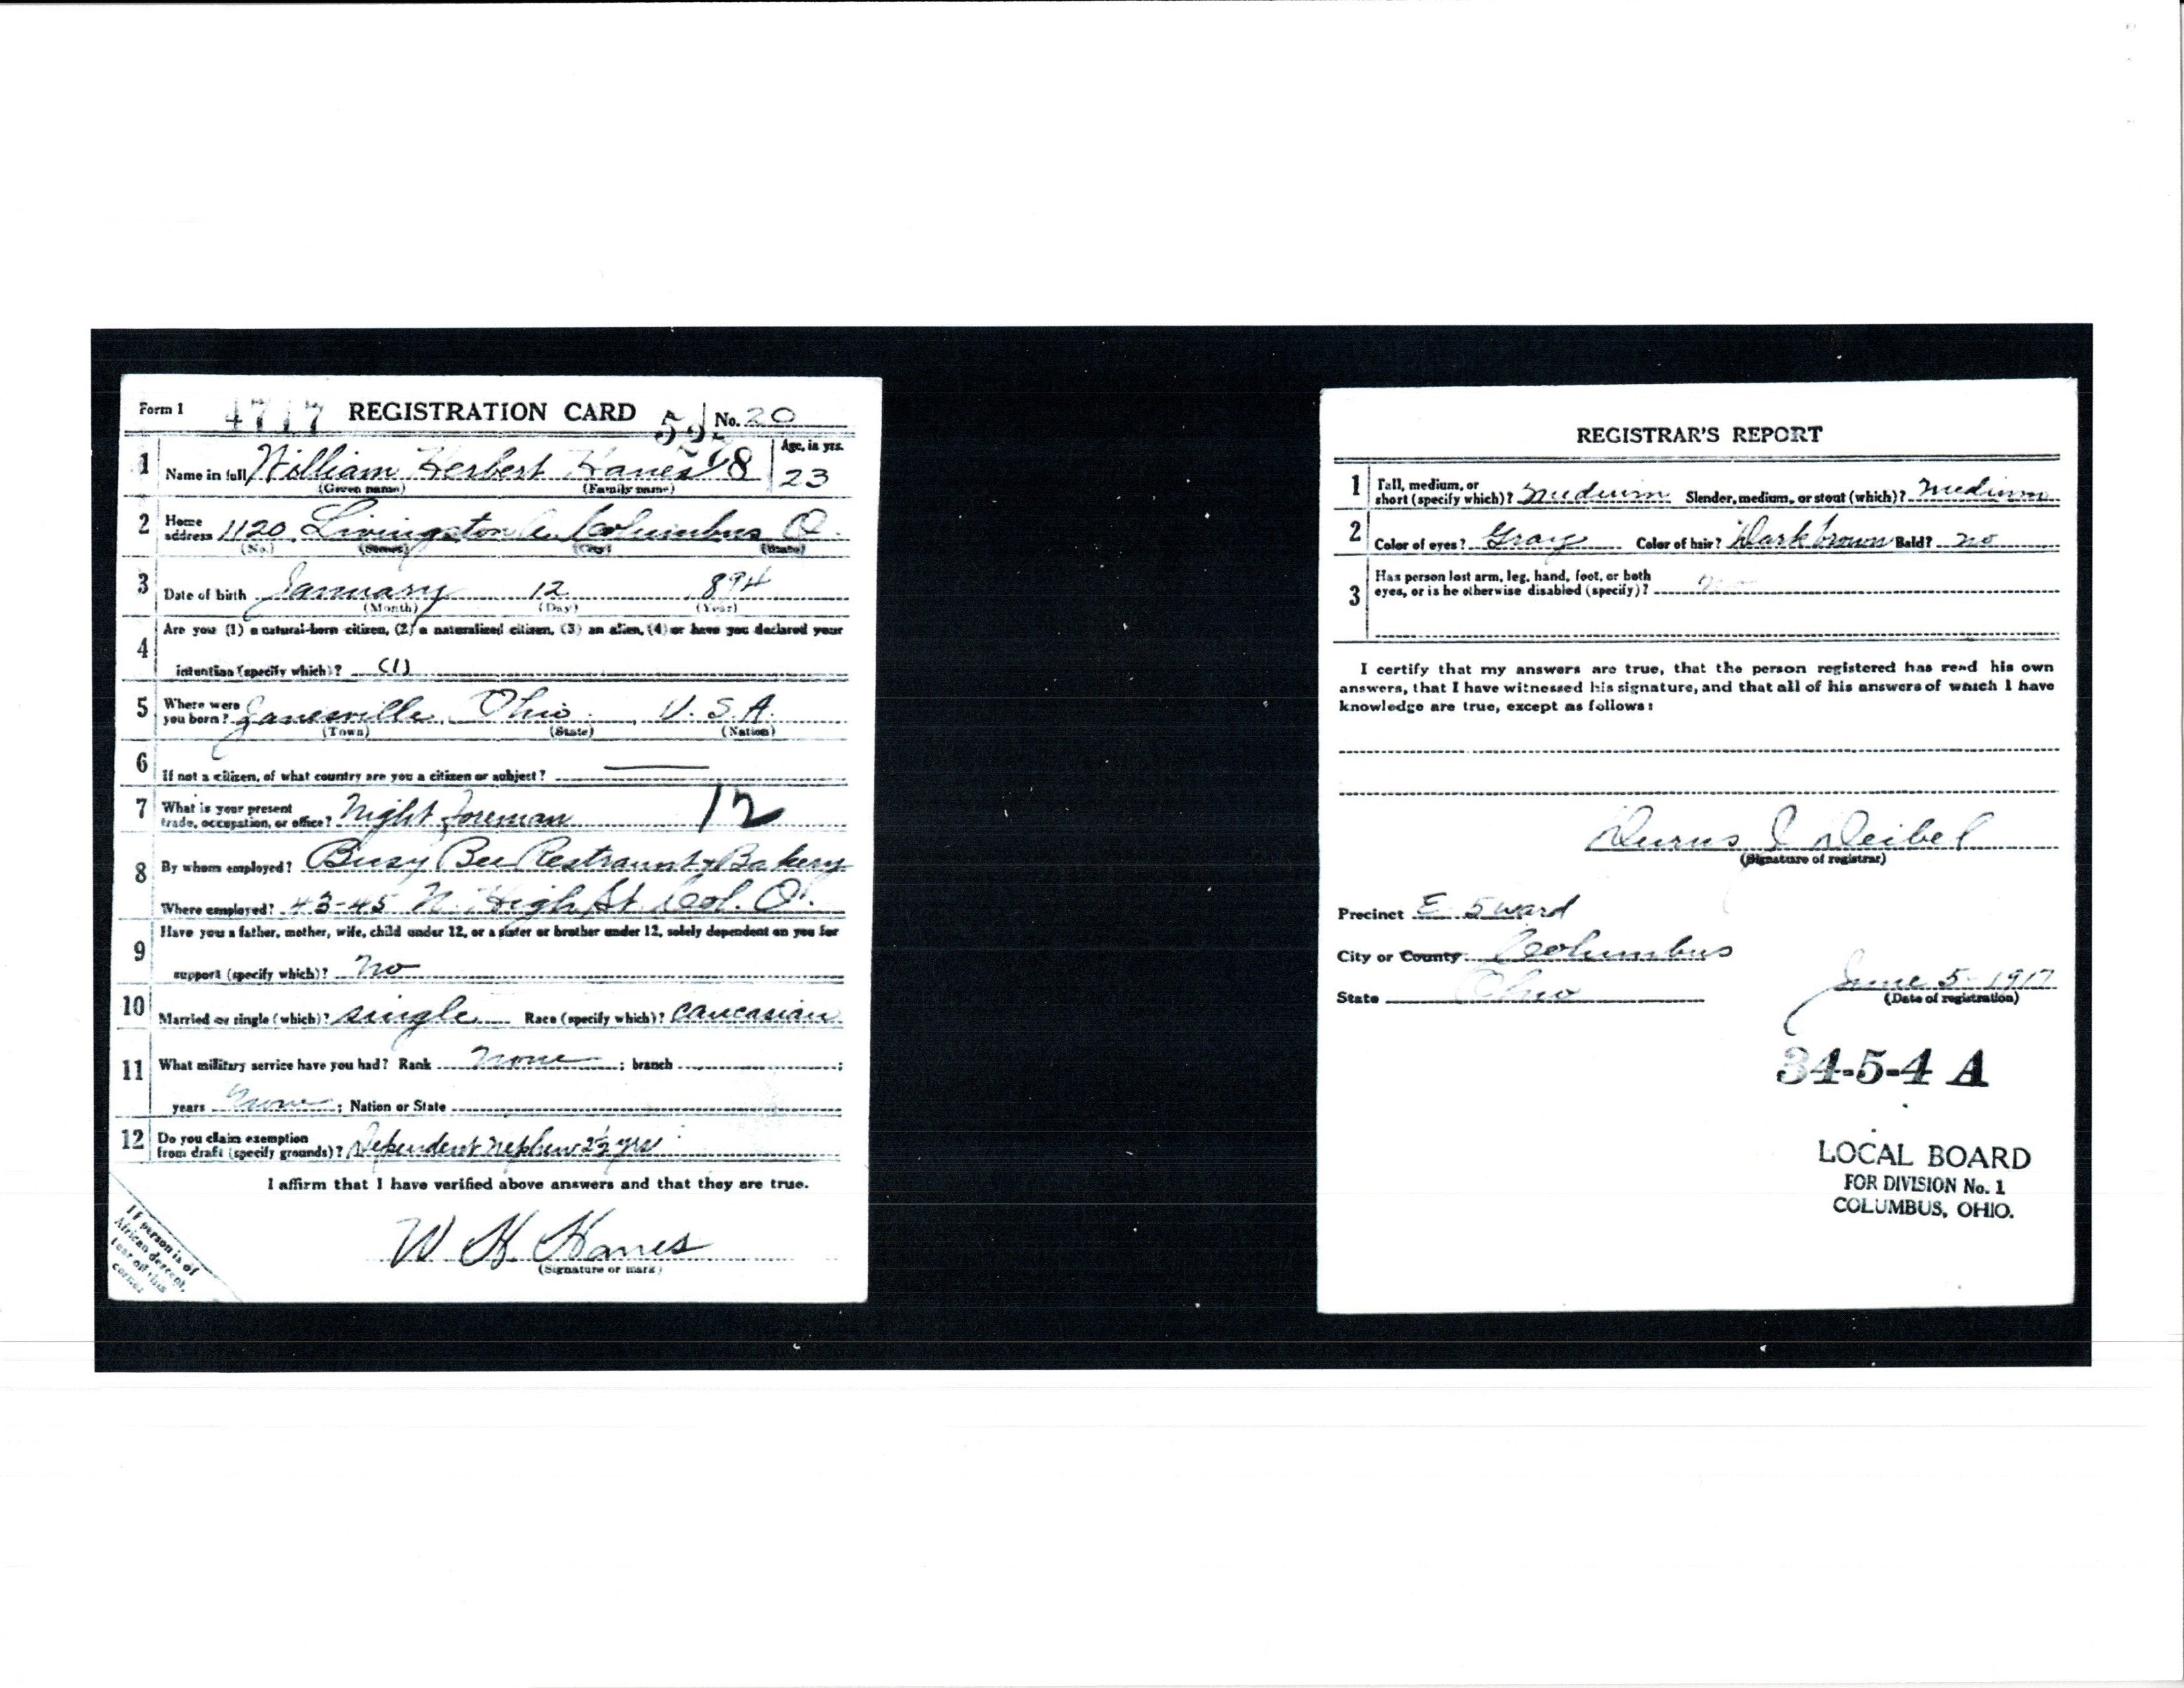 Form 1 4717 REGISTRATION CARD No. 20
1 Name in full William Herbert Hanes 8 Age, in yrs. 23
(Given name) (Family name)
2 Home address 1120 Livingston Columbus O.
(No.) (Street) (City) (State)
3 Date of birth January 12 894
(Month) (Day) (Year)
4 Are you (1) a natural-born citizen, (2) a naturalized citizen, (3) an alien, (4) or have you declared your
intention (specify which)? (1)
5 Where were you born? Zanesville, Ohio, U.S.A.
(Town) (State) (Nation)
6 If not a citizen, of what country are you a citizen or subject?
7 What is your present trade, occupation, or office? Night foreman 12
8 By whom employed? Busy Bee Restraunt + Bakery
Where employed? 43-45 N. High St. Col. O.
9 Have you a father, mother, wife, child under 12, or a sister or brother under 12, solely dependent on you for
support (specify which)? No
10 Married or single (which)? single Race (specify which)? caucasian
11 What military service have you had? Rank none; branch ;
years none; Nation or State
12 Do you claim exemption from draft (specify grounds)? Dependent nephew 2½ yrs
I affirm that I have verified above answers and that they are true.
W H Hanes
(Signature or mark)
If person is of
African descent,
tear off this
corner
REGISTRAR'S REPORT
1 Tall, medium, or short (specify which)? medium Slender, medium, or stout (which)? medium
2 Color of eyes? Gray Color of hair? Dark brown Bald? no
3 Has person lost arm, leg, hand, foot, or both
eyes, or is he otherwise disabled (specify)? no
I certify that my answers are true, that the person registered has read his own
answers, that I have witnessed his signature, and that all of his answers of which I have
knowledge are true, except as follows:
Deibel
(Signature of registrar)
Precinct E 5 ward
City or County Columbus
State Ohio June 5-1917
(Date of registration)
34-5-4 A
LOCAL BOARD
FOR DIVISION No. 1
COLUMBUS, OHIO.